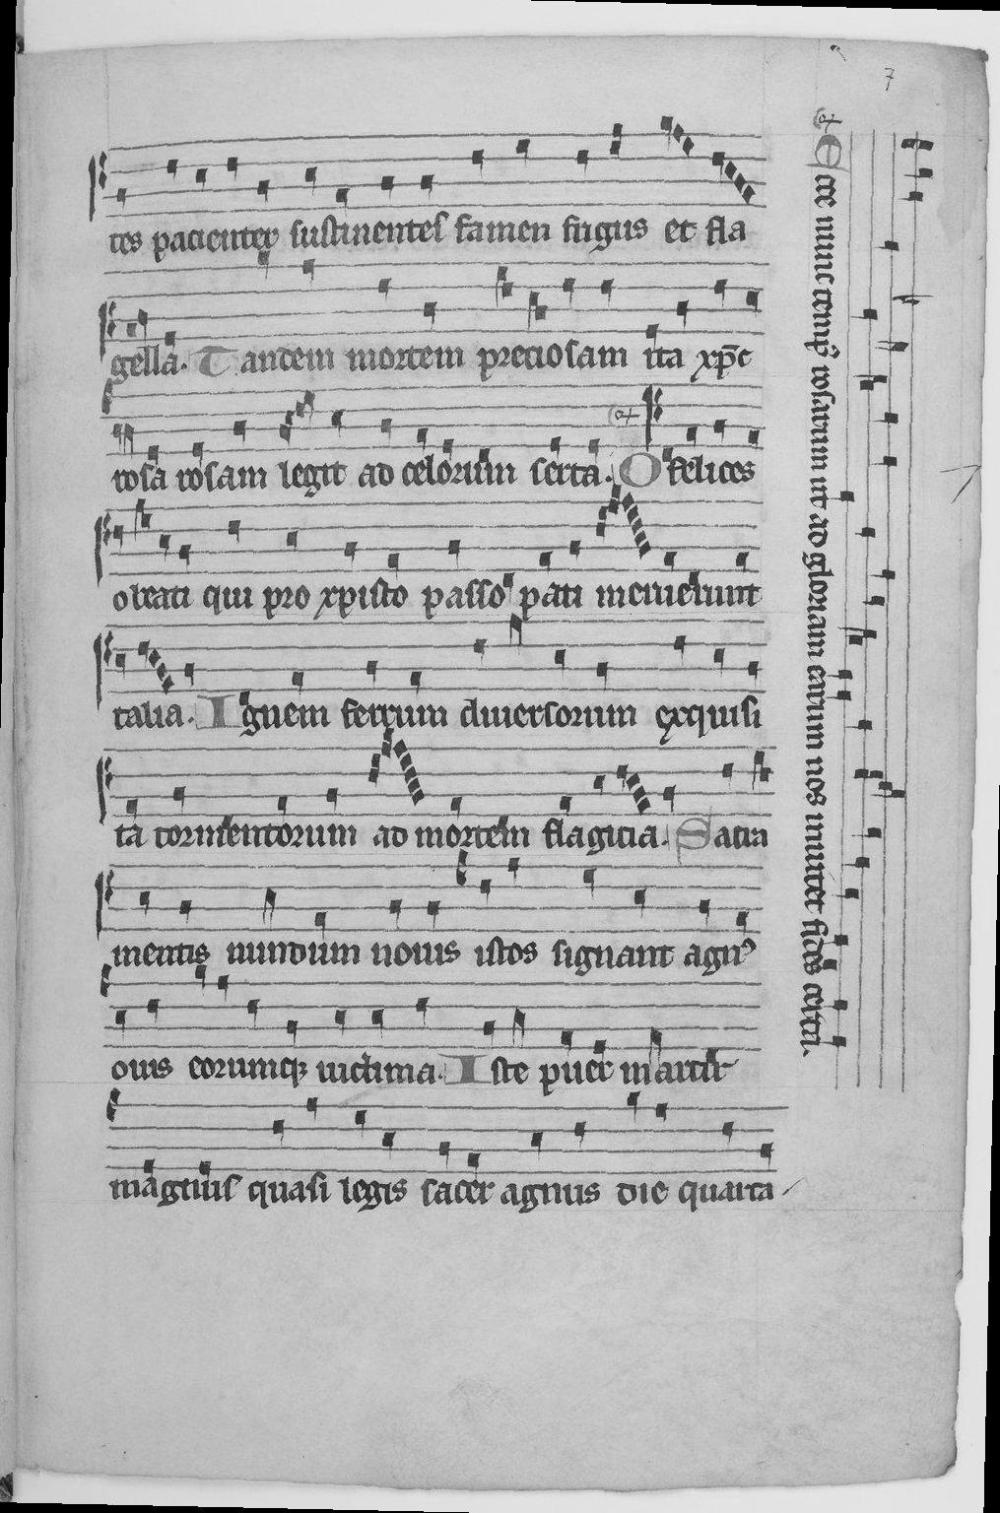 7
tes pacienter sustinentes famen frigus et fla
gella. Tandem mortem preciosam ita xp̄c
rosa rosam legit ad celorum serta. O felices
o beati qui pro xpisto passo pati meruerunt
talia. Ignem ferrum diuersorum exquisi
ta tormentorum ad mortem flagicia. Sacra
mentis nundum nouis istos signant agnꝰ
ouis eorumqꝫ uictima. Iste puer martir
magnus quasi legis sacer agnus die quarta
Ecce nunc tempꝰ rosarum ut ad gloriam earum nos inuitet fides certa.